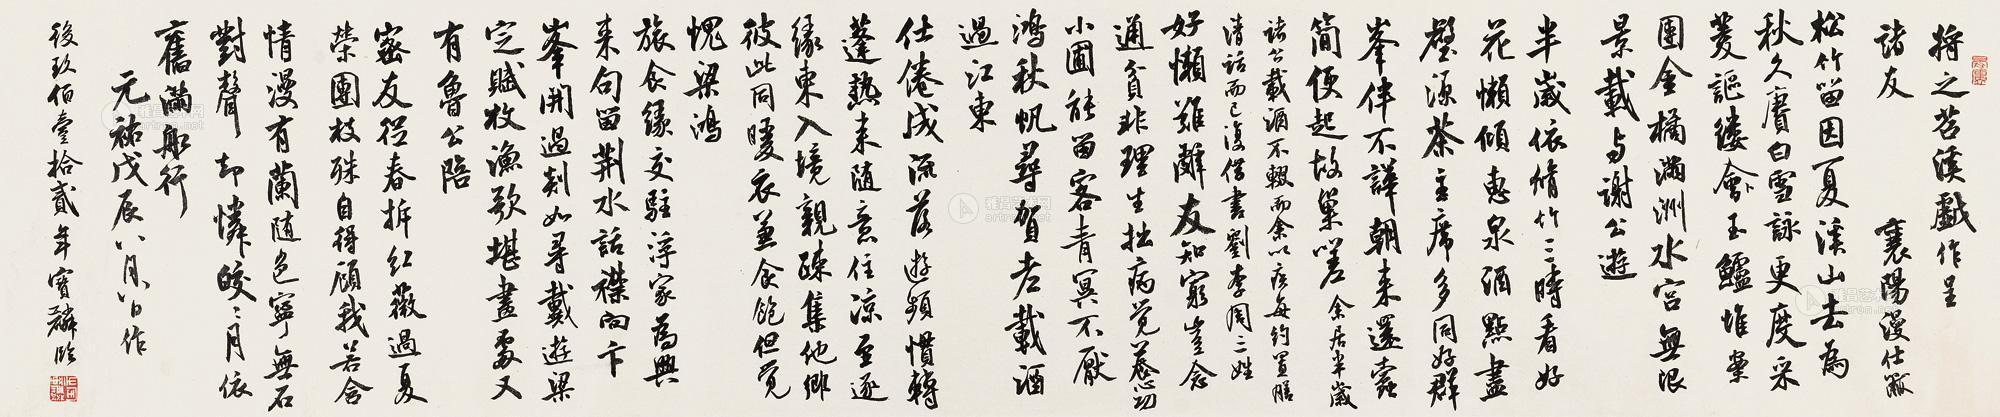 将之苕溪戲作呈
諸友 襄陽漫仕黻
松竹留因夏溪山去為
秋久賡白雪詠更度采
菱謳縷會玉鱸堆案
團金橘滿洲水宮無限
景載与謝公遊
半歲依脩竹三時看好
花懶傾惠泉酒點盡
壑源茶主席多同好群
峯伴不譁朝来還蠹
簡便起故巢嗟 余居半歲
諸公載酒不輟而余以疾每約置膳
清話而已復借書劉李周三姓
好懶難辭友知窮豈念
通貧非理生拙病覺養心功
小圃能留客青冥不厭
鴻秋帆尋賀老載酒
過江東
仕倦成流落遊頻慣轉
蓬熱来随意住涼至逐
緣東入境親疎集他鄉
彼此同暖衣兼食飽但覺
愧梁鴻
旅食緣交駐浮家為興
来句留荆水話襟向卞
峯開過剡如尋戴遊梁
定賦枚漁歌堪畫處又
有魯公陪
密友從春拆紅薇過夏
榮團枝殊自得顧我若含
情漫有蘭随色寧無石
對聲却憐皎〻月依
舊滿船行
元祐戊辰八月八日作
後玖佰壹拾貳年寶麟臨